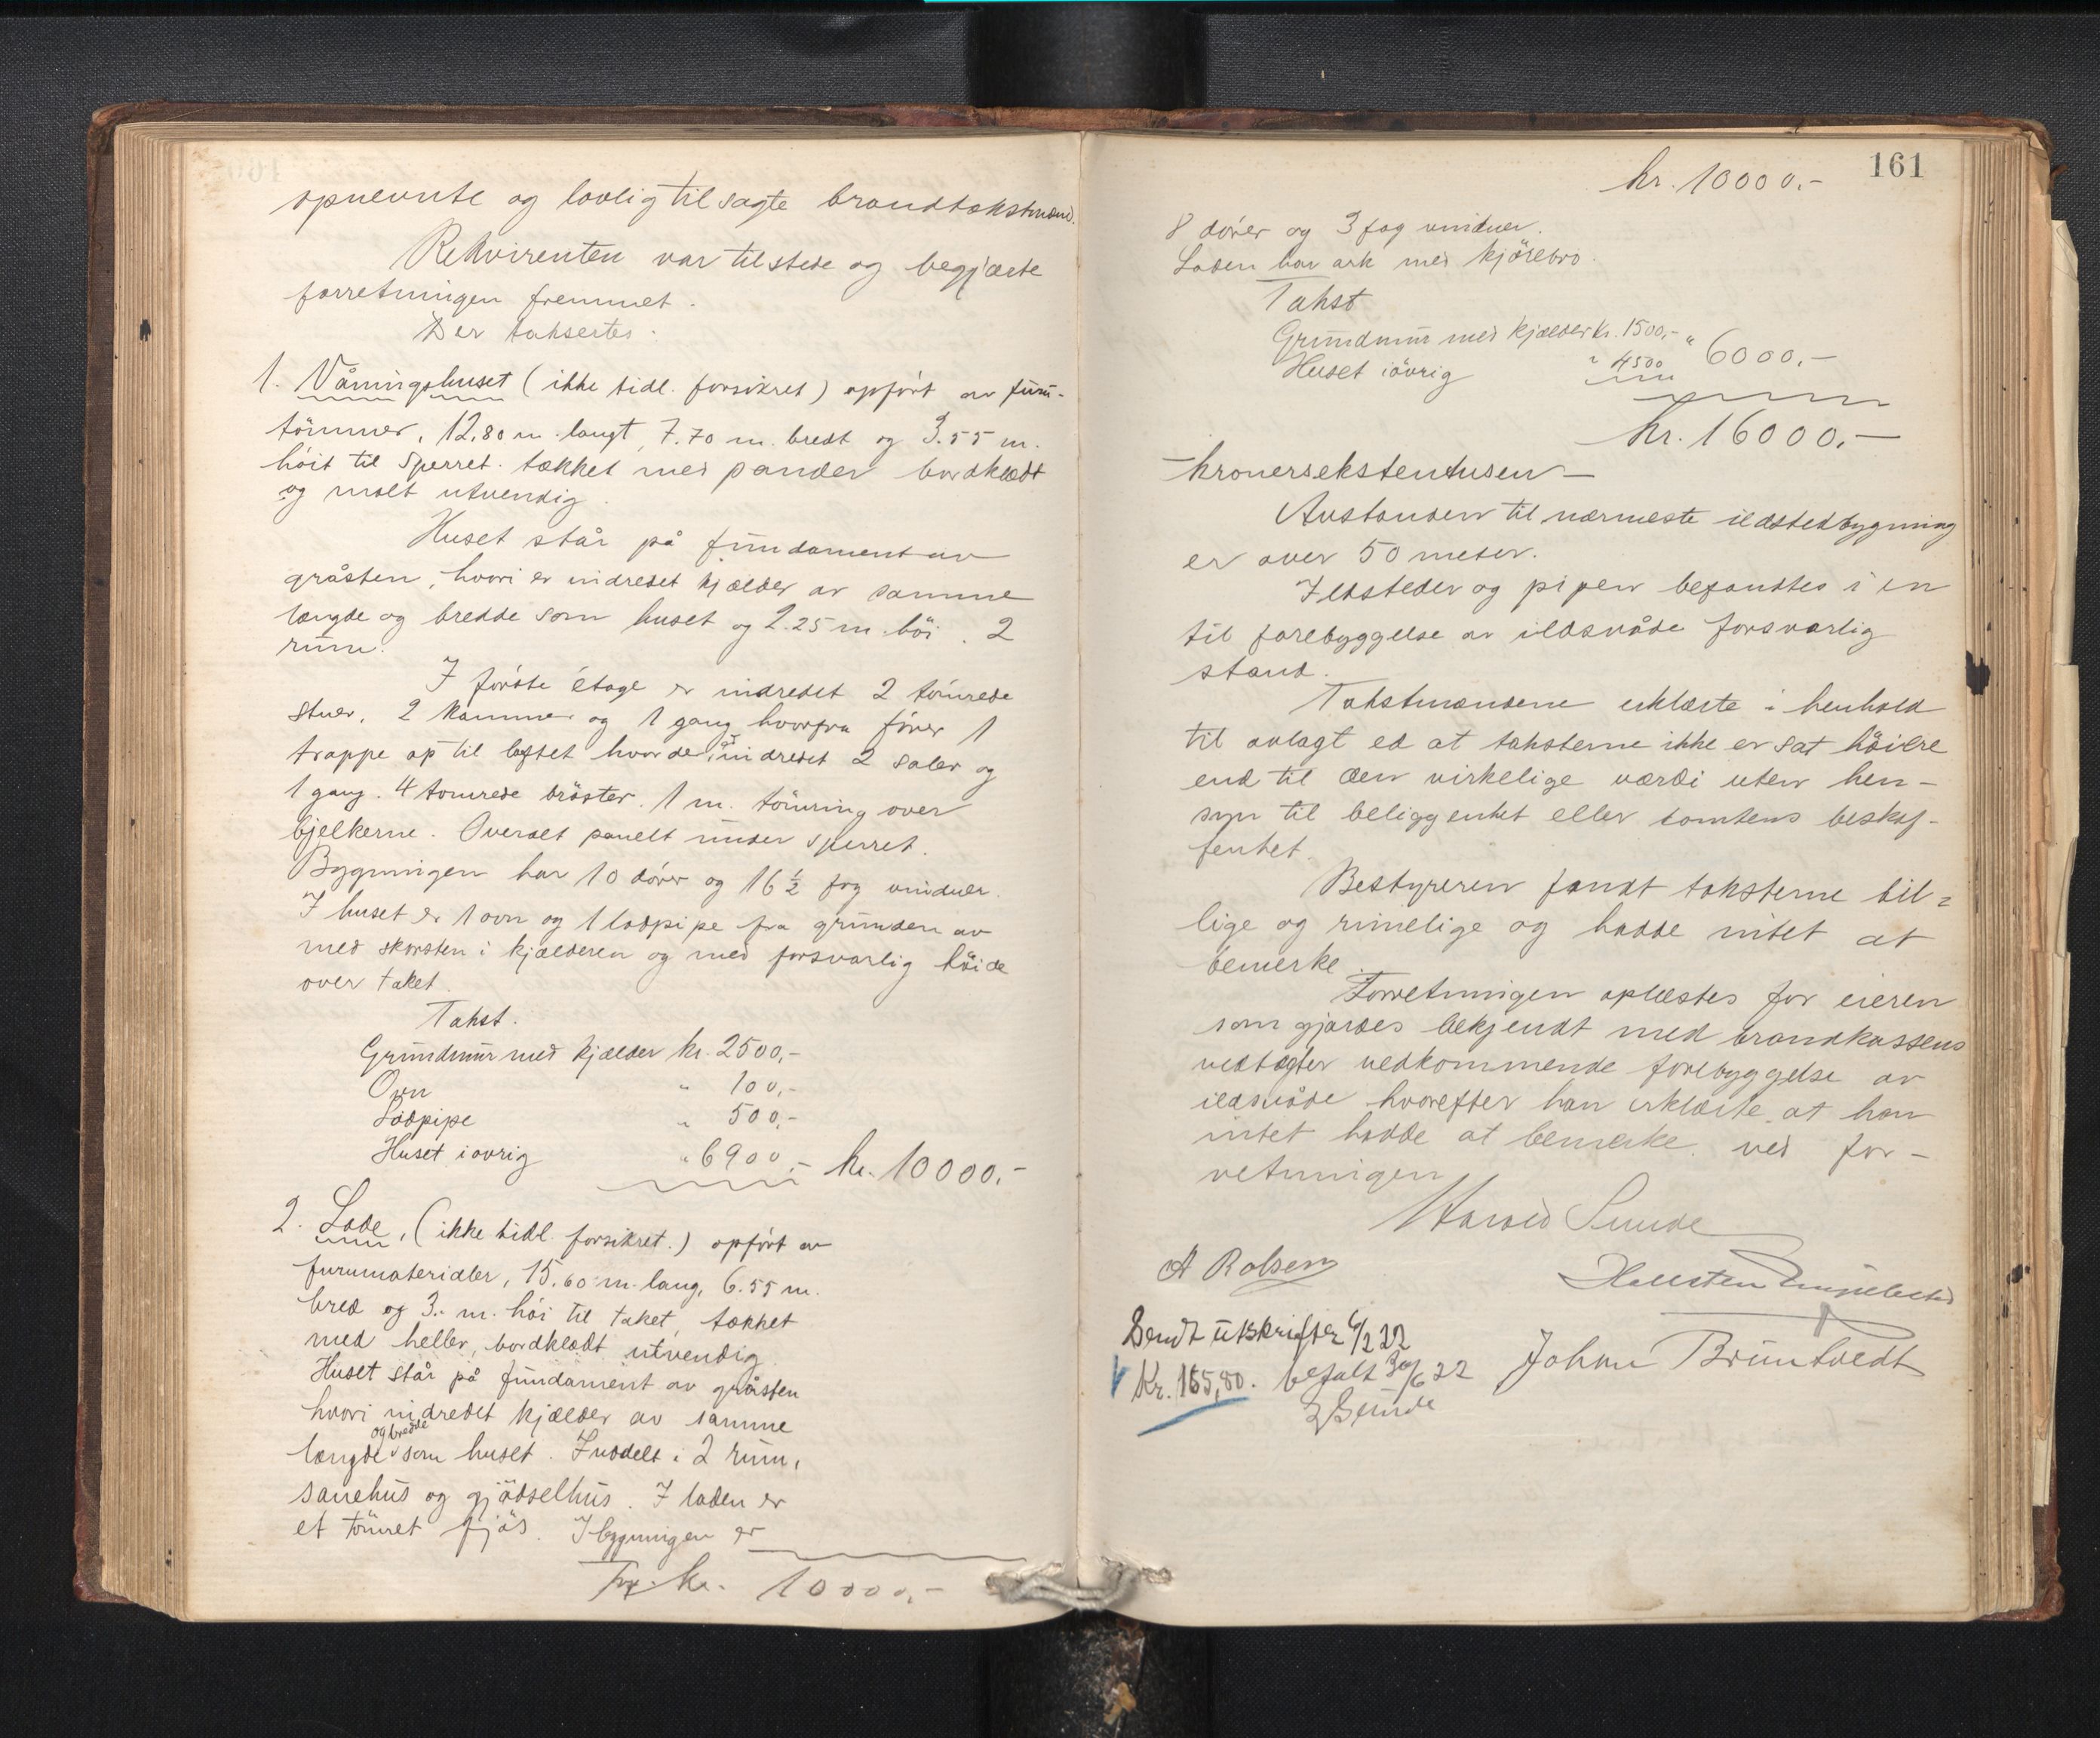 opnevnte og lovlig tilsagte brandtakstmænd.
Rekvirenten var tilstede og begjærte
forretningen fremmet.
Der taksertes.
1. Våningshuset (ikke tidl. forsikret) opført av furu-
tömmer, 12.80 m. langt, 7.70 m. bredt og 3.55 m.
höit til sperret. tækket med pander bordklædt
og malt utvendig.
Huset står på fundament av
gråsten, hvori er indredet kjælder av samme
længde og bredde som huset og 2.25 m. höi. 2
rum.
I förste étage er indredet 2 tömrede
stuer, 2 kammer og 1 gang hvorfra fører 1
trappe op til loftet hvor det er indredet 2 saler og
1 gang. 4 tomrede bröster. 1 m. tömring over
bjelkerne. Overalt panelt under sperret.
Bygningen har 10 dører og 16 ½ fag vinduer.
I huset er 1 ovn og 1 lodpipe fra grunden av
med skorsten i kjælderen og med forsvarlig höide
over taket.
Takst.
Grundmur med kjælder kr. 2500,-
Ovn " 100,-
Lodpipe " 500,-
Huset iovrig " 6900,- kr. 10000,-
2. Lade, (ikke tidl. forsikret.) opført av
furumaterialer, 15.60 m. lang, 6.55 m.
bred og 3.- m. höi til taket, tækket
med heller, bordklædt utvendig.
Huset står på fundament av gråsten
hvori indredet kjælder av samme
og bredde
længde som huset. Inddelt i 2 rum,
sauehus og gjödselhus. I laden er
et tömret fjös. I bygningen er
Trp. kr. 10000,-
161
kr. 10000.-
8 dører og 3 fag vinduer.
Laden har ark med kjörebro.
Takst
Grundmur med kjælder kr. 1500,-
Huset iövrig " 4500 " 6000,-
kr. 16000,-
-kronersekstentusen-
Avstanden til nærmeste ildstedbygning
er over 50 meter.
Ildsteder og piper befandtes i en
til forebyggelse av ildsvåde forsvarlig
stand.
Takstmændene erklærte i henhold
til avlagt ed at taksterne ikke er sat höiere
end til den virkelige værdi uten hen-
syn til beliggenhet eller tomtens beskaf-
fenhet.
Bestyreren fandt taksterne bil-
lige og rimelige og hadde intet at
bemerke.
Forretningen oplæstes for eieren
som gjordes bekjendt med brandkassens
vedtægter vedkommende forebyggelse av
ildsvåde hvorefter han erklærte at han
intet hadde at bemerke ved for-
retningen
Harald Sunde
A Rolsen
Johan Bruntvedt
Sendt utskrifter 6/2 22
Kr. 165,80. betalt 30/6 22
Sunde